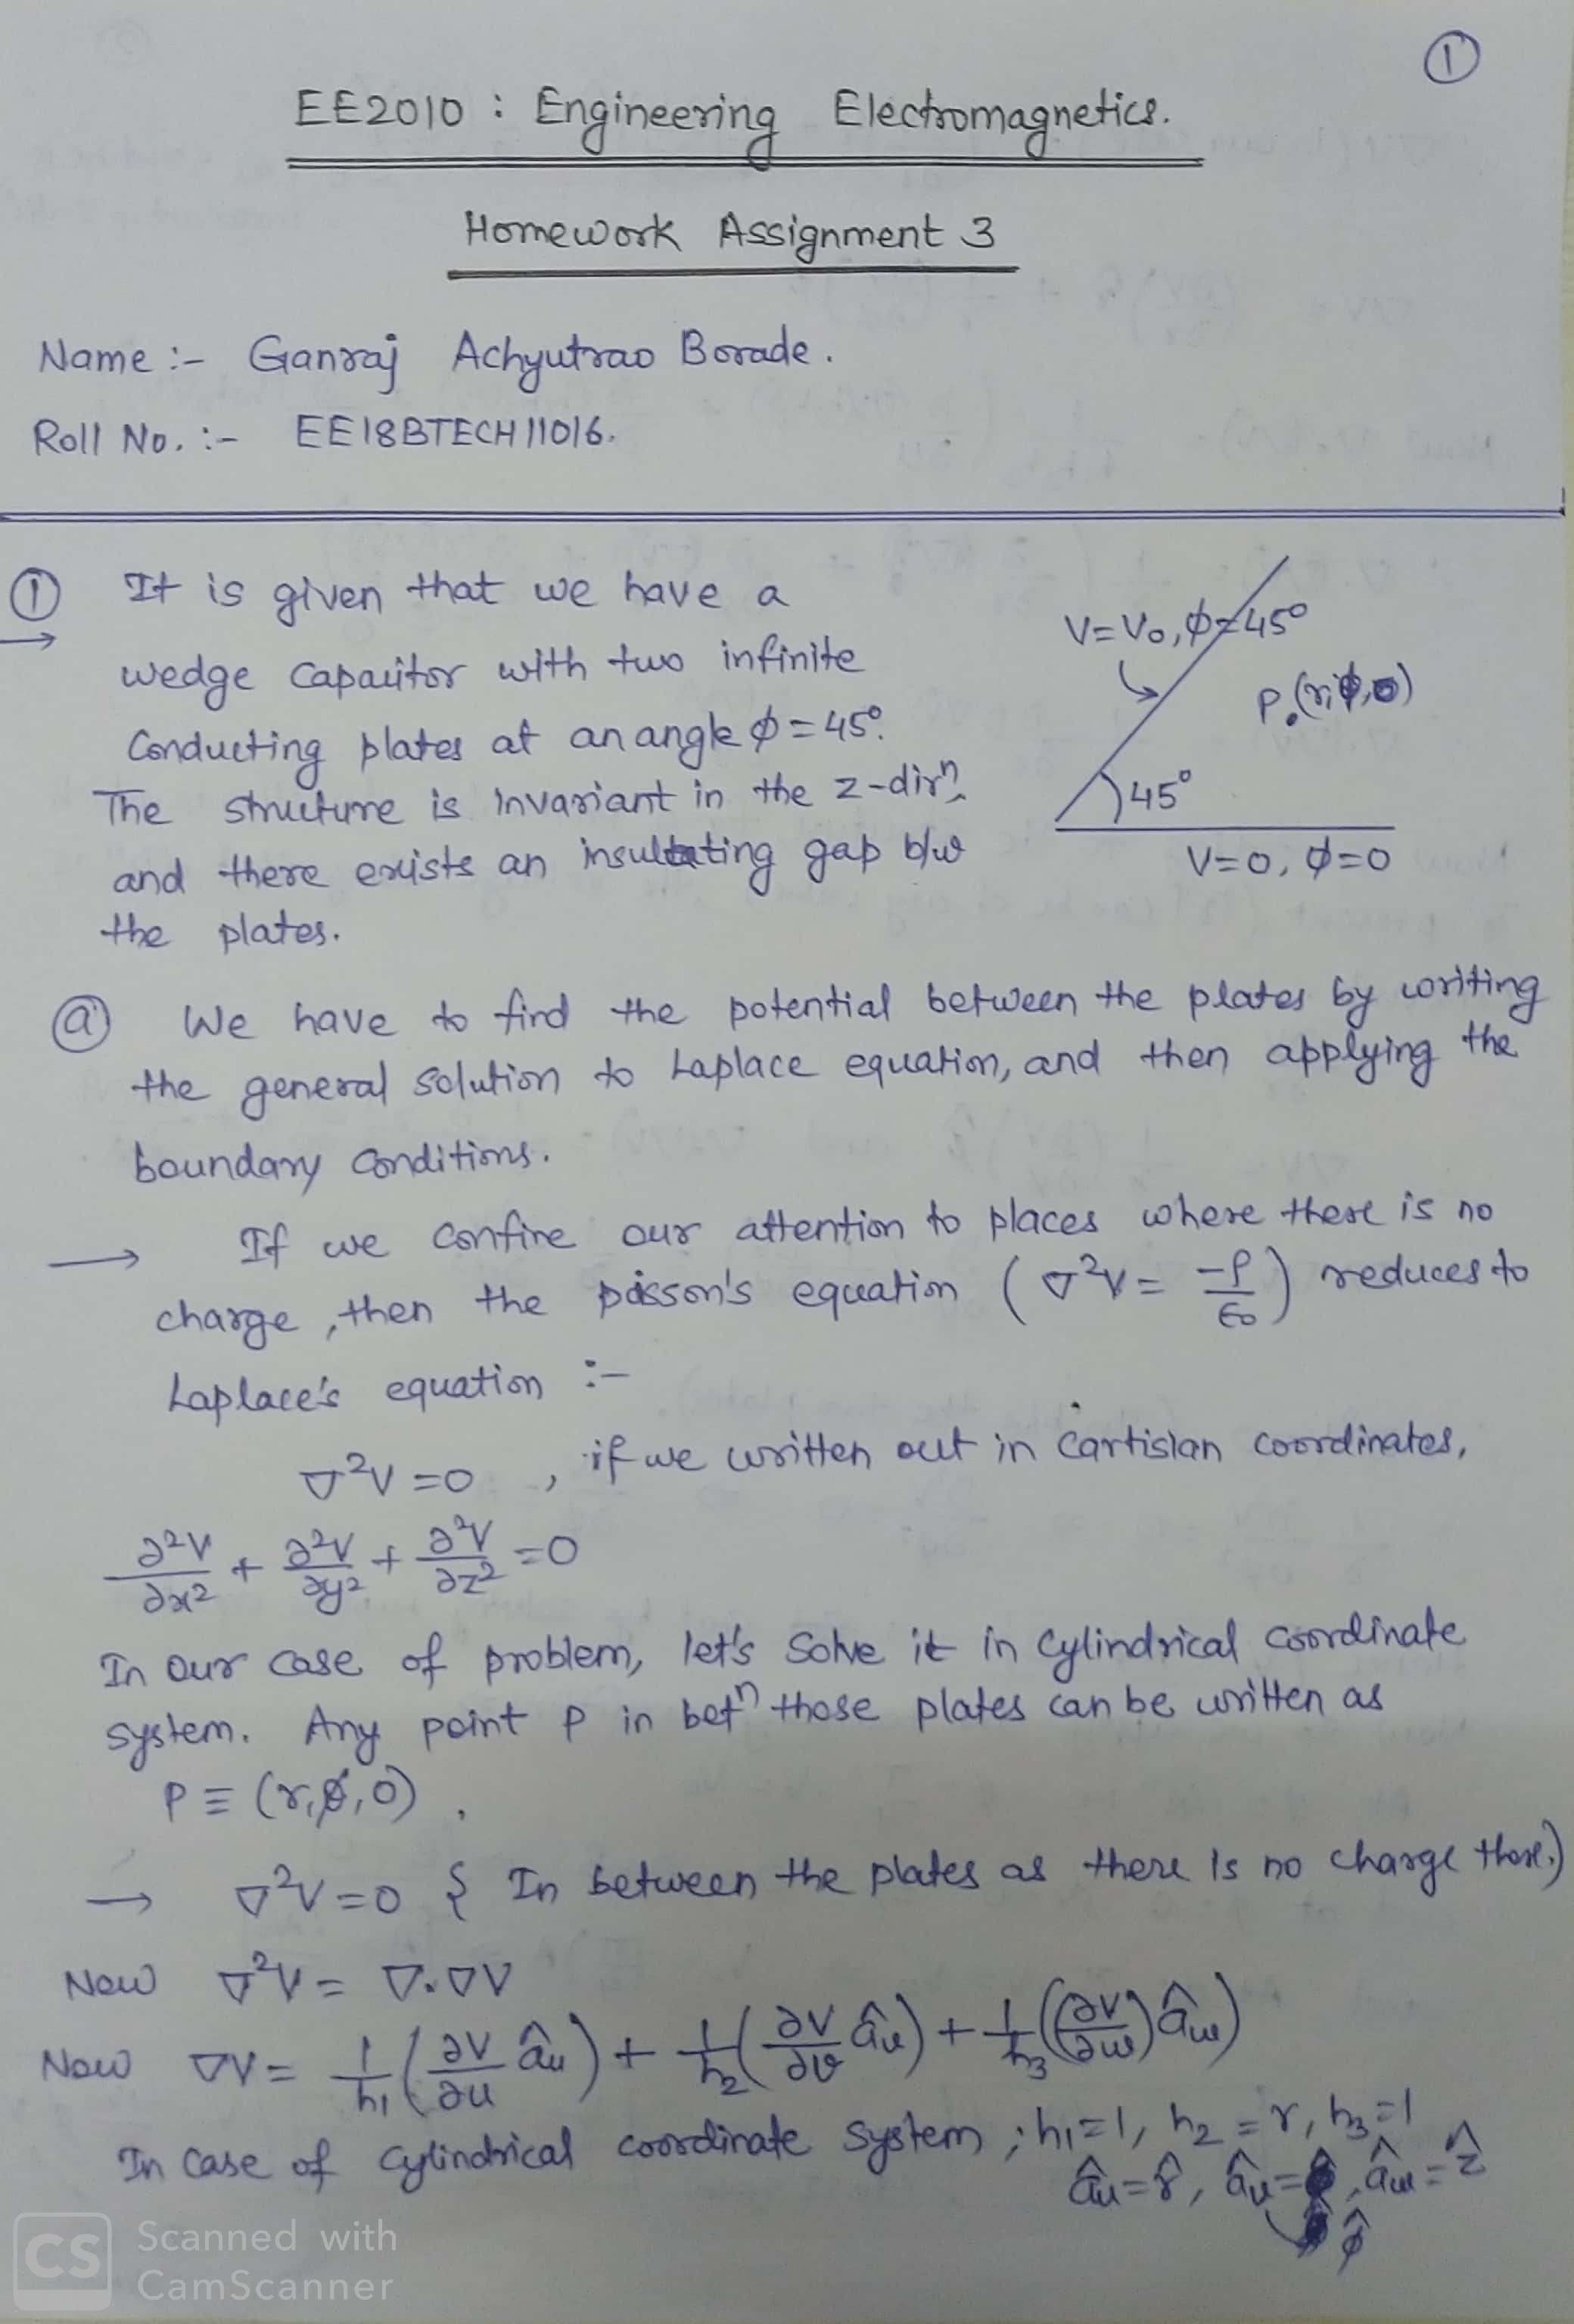 ①
EE2010 : Engineering Electromagnetics.
Homework Assignment 3
Name :- Ganraj Achyutrao Borade.
Roll No. :- EE18BTECH11016.
① It is given that we have a
wedge capacitor with two infinite
Conducting plates at an angle ϕ=45°.
The structure is invariant in the z-dirⁿ
and there exists an insulating gap b/w
the plates.
V=V₀, ϕ=45°
P.(r,ϕ,0)
45°
V=0, ϕ=0
ⓐ We have to find the potential between the plates by writing
the general solution to Laplace equation, and then applying the
boundary conditions.
→ If we confine our attention to places where there is no
charge, then the poisson's equation (∇²V = -ρ/ε₀) reduces to
Laplace's equation :-
∇²V=0 , if we written out in Cartisian coordinates,
∂²V/∂x² + ∂²V/∂y² + ∂²V/∂z² =0
In our case of problem, let's solve it in cylindrical coordinate
system. Any point P in betⁿ those plates can be written as
P ≡ (r,ϕ,0).
→ ∇²V=0 { In between the plates as there is no charge there.)
Now ∇²V = ∇.∇V
Now ∇V = 1/h₁ (∂V/∂u âu) + 1/h₂ (∂V/∂v âv) + 1/h₃ ((∂V/∂w) âw)
In case of cylindrical coordinate system ; h₁=1, h₂=r, h₃=1
âu=r̂, âv=ϕ̂, âw=ẑ
CS Scanned with
CamScanner